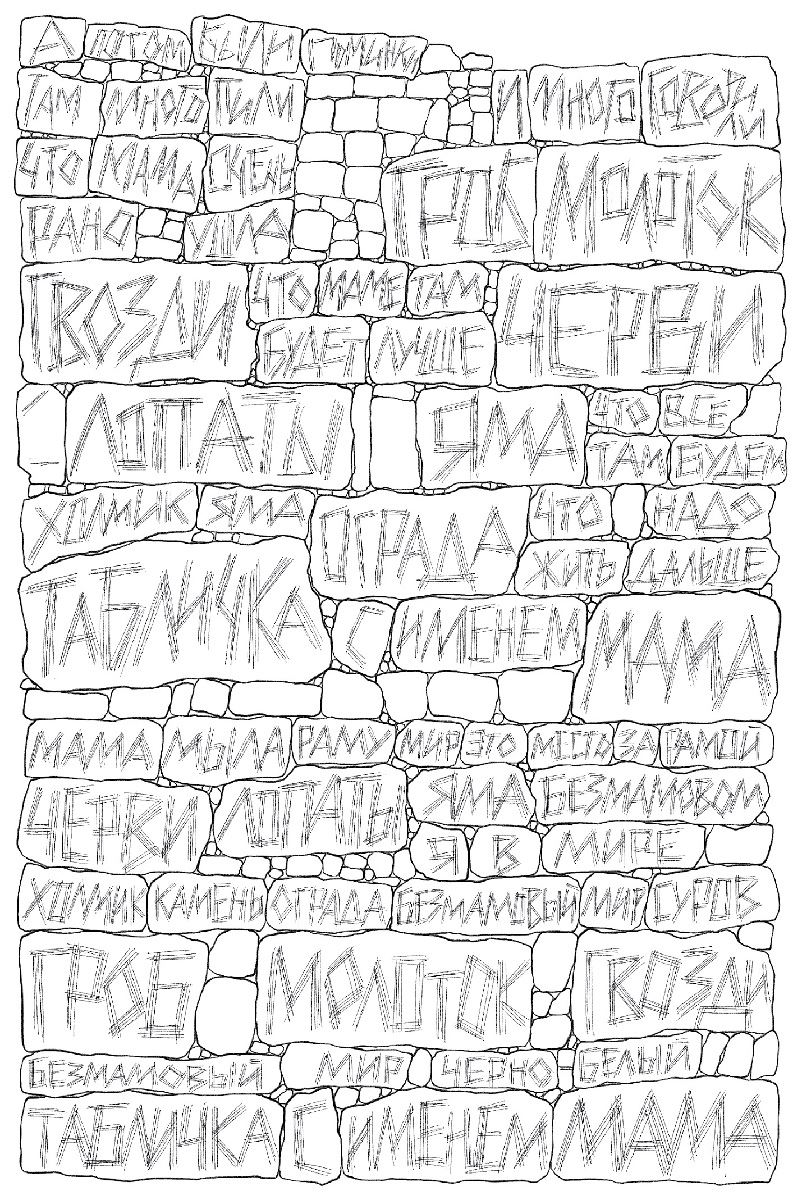 А ПОТОМ БЫЛИ ПОМИНКИ
ТАМ МНОГО ПИЛИ И МНОГО ГОВОРИЛИ
ЧТО МАМА ОЧЕНЬ
РАНО УШЛА ГРОБ МОЛОТОК
ГВОЗДИ ЧТО МАМЕ ТАМ
БУДЕТ ЛУЧШЕ ЧЕРВИ
ЛОПАТЫ ЯМА ЧТО ВСЕ
ТАМ БУДЕМ
ХОЛМИК ЯМА ОГРАДА ЧТО НАДО
ЖИТЬ ДАЛЬШЕ
ТАБЛИЧКА С ИМЕНЕМ МАМА
МАМА МЫЛА РАМУ МИР ЭТО МЕСТО ЗА РАМОЙ
ЧЕРВИ ЛОПАТЫ ЯМА БЕЗМАМОВОМ
Я В МИРЕ
ХОЛМИК КАМЕНЬ ОГРАДА БЕЗМАМОВЫЙ МИР СУРОВ
ГРОБ МОЛОТОК ГВОЗДИ
БЕЗМАМОВЫЙ МИР ЧЕРНО-БЕЛЫЙ
ТАБЛИЧКА С ИМЕНЕМ МАМА